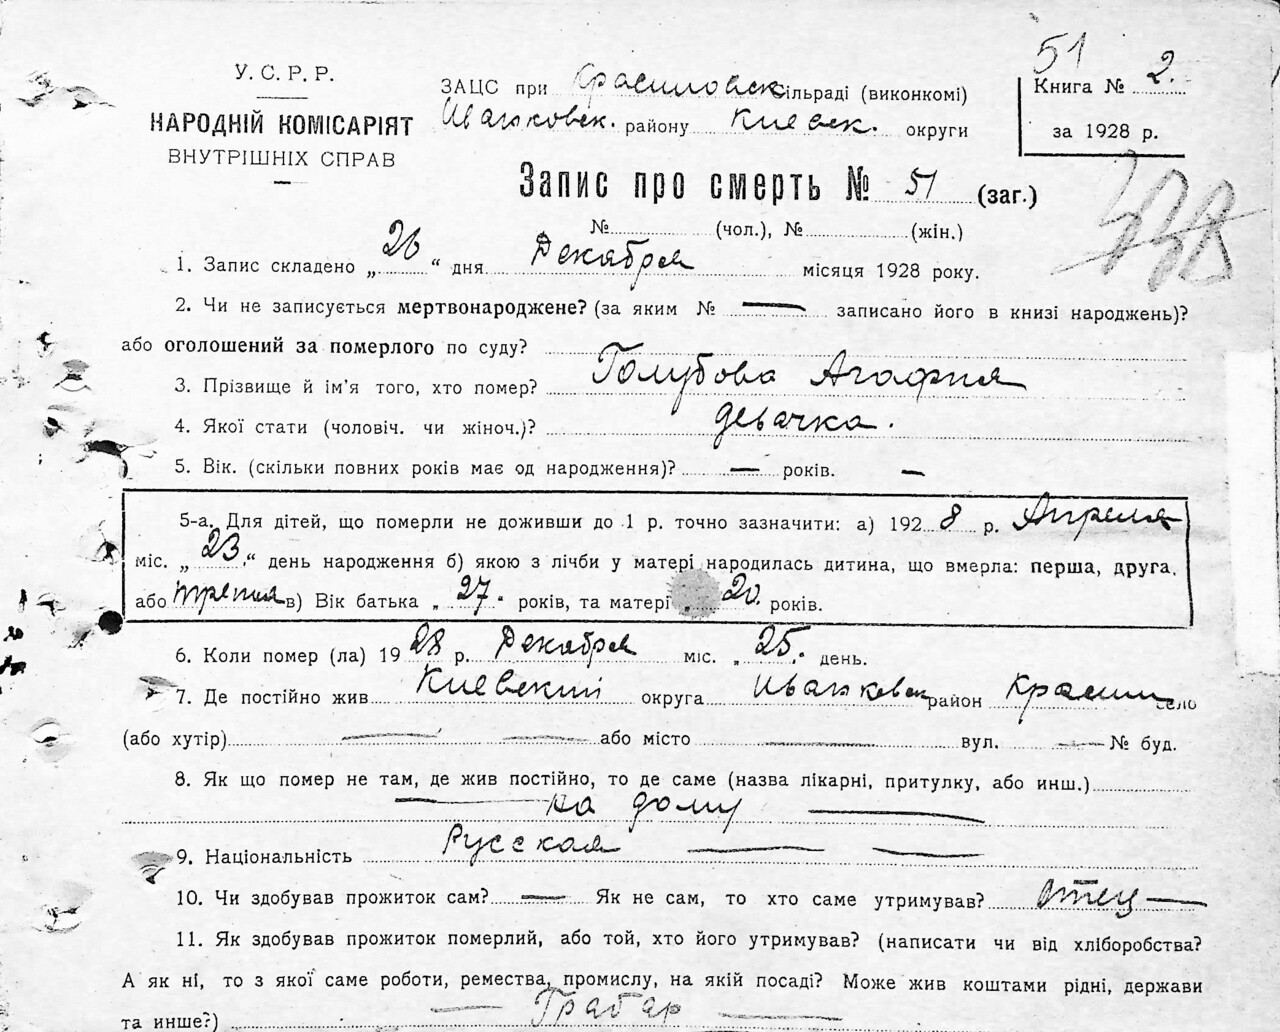 51
У. С. Р. Р.
НАРОДНІЙ КОМІСАРІЯТ
ВНУТРІШНІХ СПРАВ
ЗАЦС при Красиловск сільраді (виконкомі)
Иванковск. району Киевск. округи
Книга № 2.
за 1928 р.
Запис про смерть № 51 (заг.)
№ (чол.), № (жін.)
338
1. Запис складено „26“ дня Декабря місяця 1928 року.
2. Чи не записується мертвонароджене? (за яким № — записано його в книзі народжень)?
або оголошений за померлого по суду?
3. Прізвище й ім'я того, хто помер? Голубова Агафия
4. Якої стати (чоловіч. чи жіноч.)? девачка.
5. Вік. (скільки повних років має од народження)? — років. —
5-а. Для дітей, що померли не доживши до 1 р. точно зазначити: а) 1928 р. Апреля
міс. „23“ день народження б) якою з лічби у матері народилась дитина, що вмерла: перша, друга,
або третия в) Вік батька „27“ років, та матері „20“ років.
6. Коли помер (ла) 1928 р. Декабря міс. „25“ день.
7. Де постійно жив Киевский округа Иванковск район Красил село
(або хутір) — — або місто — вул. — № буд.
8. Як що помер не там, де жив постійно, то де саме (назва лікарні, притулку, або инш.)
— на дому —
9. Національність Русская — —
10. Чи здобував прожиток сам? — Як не сам, то хто саме утримував? Отец —
11. Як здобував прожиток померлий, або той, хто його утримував? (написати чи від хліборобства?
А як ні, то з якої саме роботи, ремества, промислу, на якій посаді? Може жив коштами рідні, держави
та инше?) — Грабар —